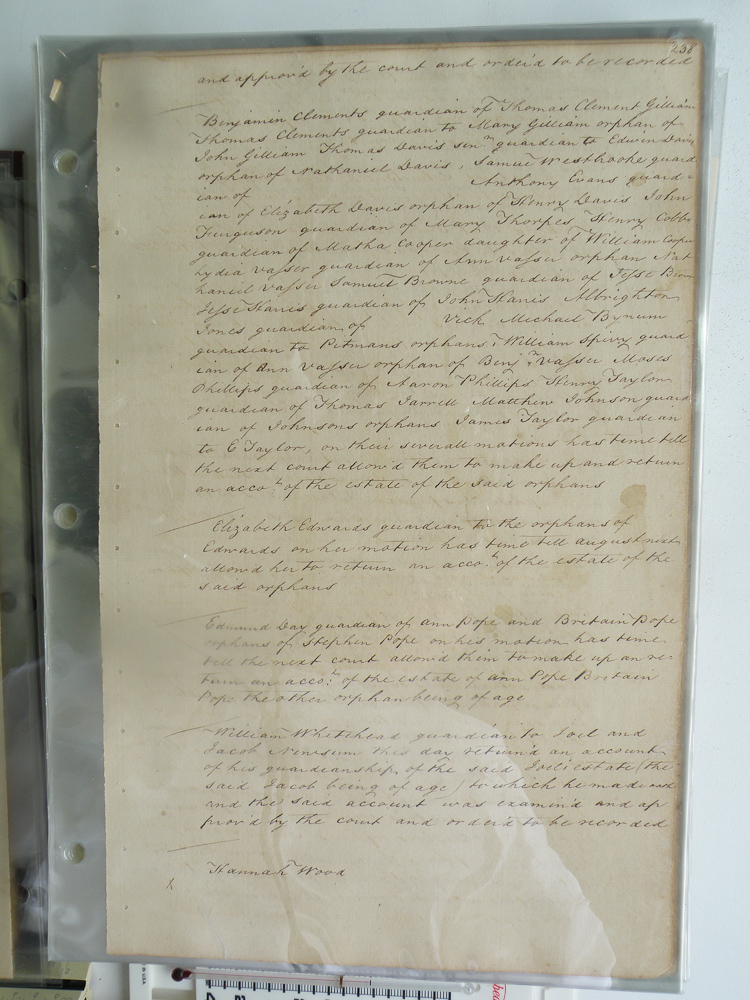 238
and approv'd by the court and order'd to be recorded
Benjamin Clements guardian of Thomas Clement Gilliam
Thomas Clements guardian to Mary Gilliam orphan of
John Gilliam Thomas Davis senr guardian to Edwin Davis
orphan of Nathaniel Davis, Samuel Westbrooke guard
ian of Anthony Evans guard-
ian of Elizabeth Davis orphan of Henry Davis John
Ferguson guardian of Mary Thorpes Henry Cobbs
guardian of Matha Cooper daughter of William Cooper
Lydia Vasser guardian of Ann Vasser orphan Nat
haniel Vasser Samuel Browne guardian of Jesse Brown
Jesse Harris guardian of John Harris Albrighton
Jones guardian of Vick Michael Bynum
guardian to Pitmans orphans, William Spivy guard
ian of Ann Vasser orphan of Benj.n Vasser Moses
Phillips guardian of Aaron Phillips Henry Taylor
guardian of Thomas Jarrell Matthew Johnson guard
ian of Johnsons orphans James Taylor guardian
to E Taylor, on their severall motions has time till
the next court allow'd them to make up and return
an acco.t of the estate of the said orphans
Elizabeth Edwards guardian to the orphans of
Edwards on her motion has time till august next
allow'd her to return an acco.t of the estate of the
said orphans
Edmund Day guardian of Ann Pope and Britain Pope
orphans of Stephen Pope on his motion has time
till the next court allow'd them to make up an re-
turn an acco.t of the estate of Ann Pope Britain
Pope the other orphan being of age
William Whitehead guardian to Joel and
Jacob Newsum this day return'd an account
of his guardianship of the said Joel's estate (the
said Jacob being of age) to which he made oath
and the said account was examin'd and ap
prov'd by the court and order'd to be recorded
Hannah Wood
X